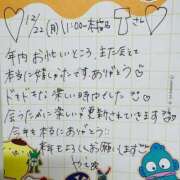 12/22(月)11:00〜本指名 Tさん
年内お忙しいところ、また会えて
本当に嬉しかったです ありがとう
ずっと楽しい時間でした
会うたびに楽しいが更新されていきます
今年もありがとう!!
来年もよろしくお願いします